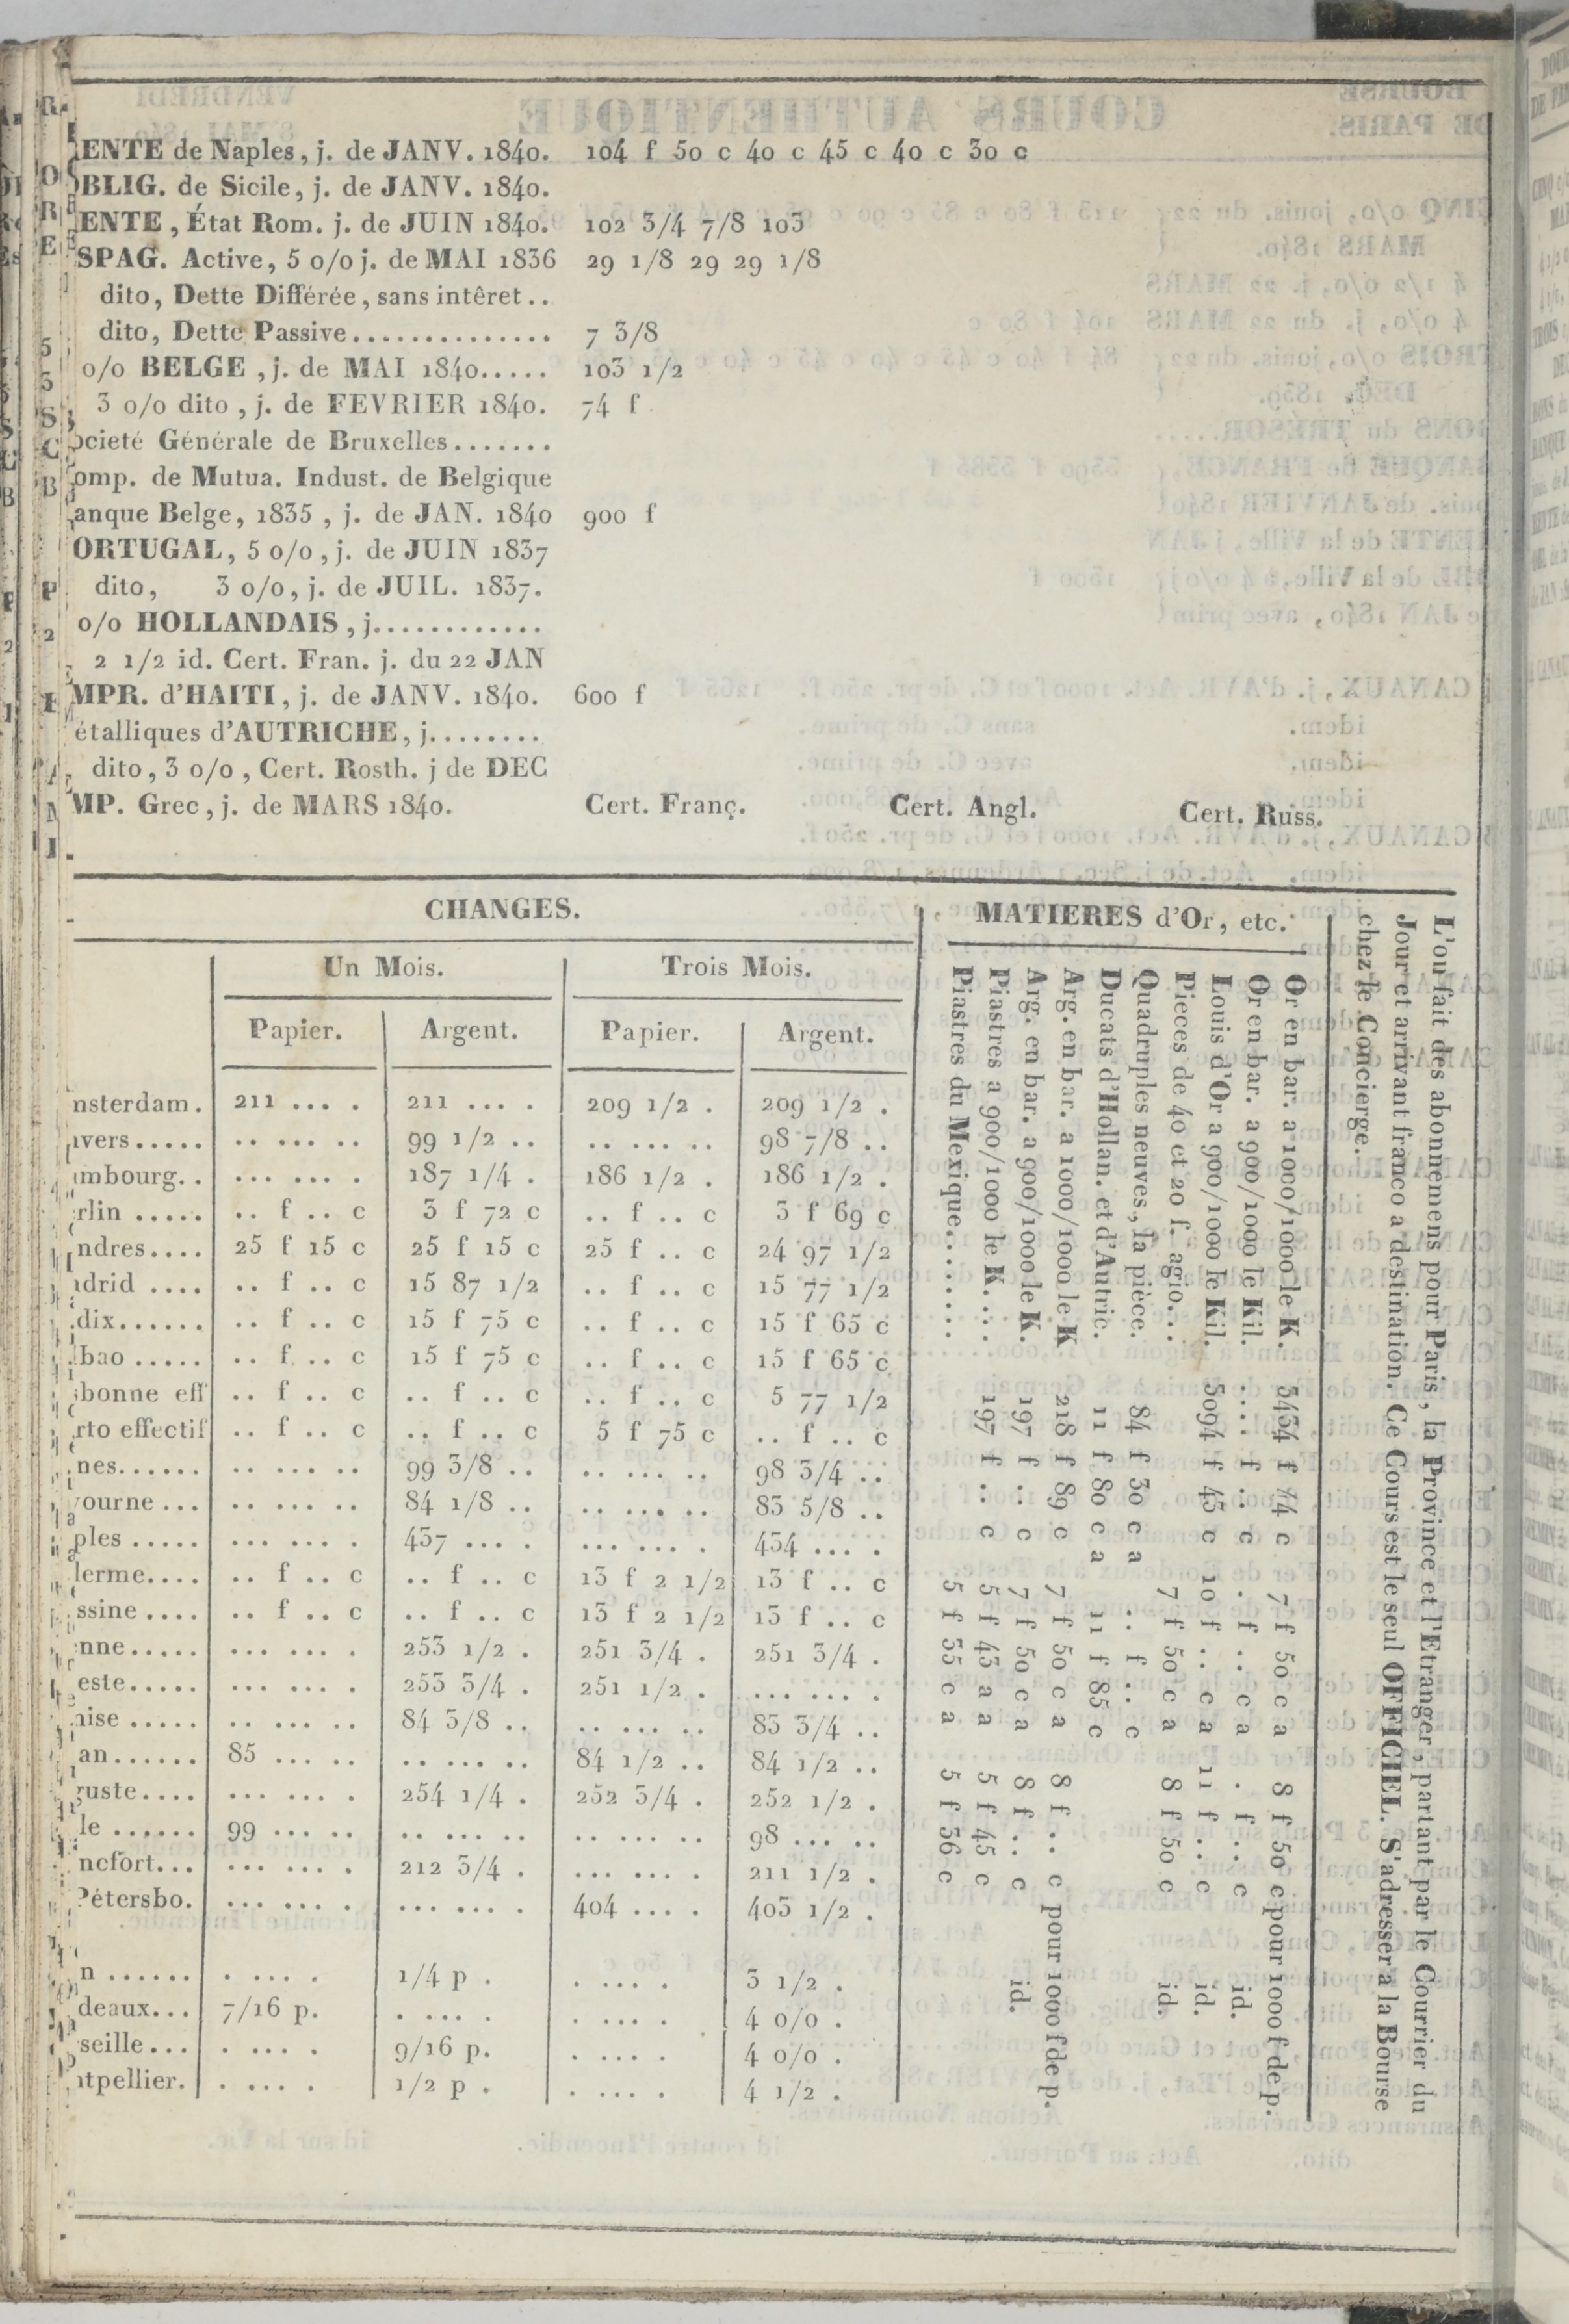 ENTE de Naples, j. de JANV. 1840. 104 f 50 c 40 c 45 c 40 c 30 c
OBLIG. de Sicile, j. de JANV. 1840.
ENTE, État Rom. j. de JUIN 1840. 102 3/4 7/8 103
SPAG. Active, 5 o/o j. de MAI 1836 29 1/8 29 29 1/8
dito, Dette Différée, sans intêret..
dito, Dette Passive.............. 7 3/8
o/o BELGE, j. de MAI 1840..... 103 1/2
3 o/o dito, j. de FEVRIER 1840. 74 f
ocieté Générale de Bruxelles.......
omp. de Mutua. Indust. de Belgique
anque Belge, 1835, j. de JAN. 1840 900 f
ORTUGAL, 5 o/o, j. de JUIN 1837
dito, 3 o/o, j. de JUIL. 1837.
o/o HOLLANDAIS, j............
2 1/2 id. Cert. Fran. j. du 22 JAN
MPR. d'HAITI, j. de JANV. 1840. 600 f
étalliques d'AUTRICHE, j........
dito, 3 o/o, Cert. Rosth. j de DEC
MP. Grec, j. de MARS 1840. Cert. Franç. Cert. Angl. Cert. Russ.
CHANGES.
Un Mois. Trois Mois.
Papier. Argent. Papier. Argent.
nsterdam. 211 ... . 211 ... . 209 1/2 . 209 1/2 .
nvers..... .. ... .. 99 1/2 .. .. ... .. 98 7/8 ..
ambourg.. ... ... . 187 1/4 . 186 1/2 . 186 1/2 .
rlin ..... .. f .. c 3 f 72 c .. f .. c 3 f 69 c
ndres.... 25 f 15 c 25 f 15 c 25 f .. c 24 97 1/2
adrid .... .. f .. c 15 87 1/2 .. f .. c 15 77 1/2
dix...... .. f .. c 15 f 75 c .. f .. c 15 f 65 c
lbao ..... .. f .. c 15 f 75 c .. f .. c 15 f 65 c
sbonne eff .. f .. c .. f .. c .. f .. c 5 77 1/2
rto effectif .. f .. c .. f .. c 5 f 75 c .. f .. c
nes...... .. ... .. 99 3/8 .. .. ... .. 98 3/4 ..
vourne ... .. ... .. 84 1/8 .. .. ... .. 83 5/8 ..
ples ..... ... ... . 437 ... . ... ... . 434 ... .
lerme.... .. f .. c .. f .. c 13 f 2 1/2 13 f .. c
ssine .... .. f .. c .. f .. c 13 f 2 1/2 13 f .. c
nne..... ... ... . 253 1/2 . 251 3/4 . 251 3/4 .
este..... ... ... . 253 3/4 . 251 1/2 . ... ... .
nise ..... .. ... .. 84 3/8 .. .. ... .. 83 3/4 ..
an...... 85 ... .. .. ... .. 84 1/2 .. 84 1/2 ..
guste.... ... ... . 254 1/4 . 252 3/4 . 252 1/2 .
le ...... 99 ... .. .. ... .. .. ... .. 98 ... ..
ncfort... ... ... . 212 3/4 . ... ... . 211 1/2 .
Pétersbo. ... ... . ... ... . 404 ... . 403 1/2 .
n ...... . ... . 1/4 p . . ... . 3 1/2 .
deaux... 7/16 p. . ... . . ... . 4 o/o .
seille... . ... . 9/16 p. . ... . 4 o/o .
ntpellier. . ... . 1/2 p . . ... . 4 1/2 .
MATIERES d'Or, etc.
Or en bar. a 1000/1000 le K. 3434 f 44 c 7 f 50 c a 8 f 50 c pour 1000 f de p.
Or en bar. a 900/1000 le Kil. .... f .. c . f .. c a . f .. c id.
Louis d'Or a 900/1000 le Kil. 3094 f 43 c 10 f .. c a 11 f .. c id.
Pieces de 40 et 20 f. agio... 7 f 50 c a 8 f 50 c id.
Quadruples neuves, la pièce. 84 f 30 c a .. f .. c
Ducats d'Hollan. et d'Autric. 11 f 80 c a 11 f 85 c
Arg. en bar. a 1000/1000 le K 218 f 89 c 7 f 50 c a 8 f .. c pour 1000 f de p.
Arg. en bar. a 900/1000 le K. 197 f .. c 7 f 50 c a 8 f .. c id.
Piastres a 900/1000 le K.... 197 f .. c 5 f 43 a a 5 f 45 c
Piastres du Mexique........ 5 f 35 c a 5 f 36 c
L'on fait des abonnemens pour Paris, la Province et l'Etranger, partant par le Courrier du
Jour et arrivant franco a destination. Ce Cours est le seul OFFICIEL. S'adresser a la Bourse
chez le Concierge.